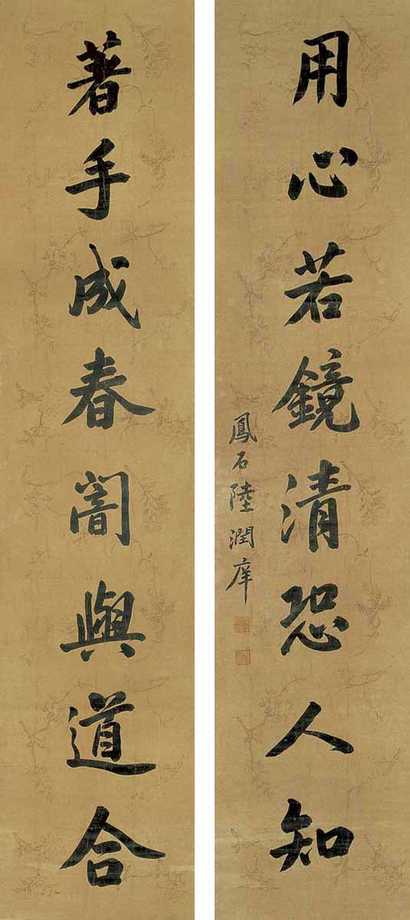 用心若鏡清恐人知
鳳石陸潤庠
著手成春闇與道合